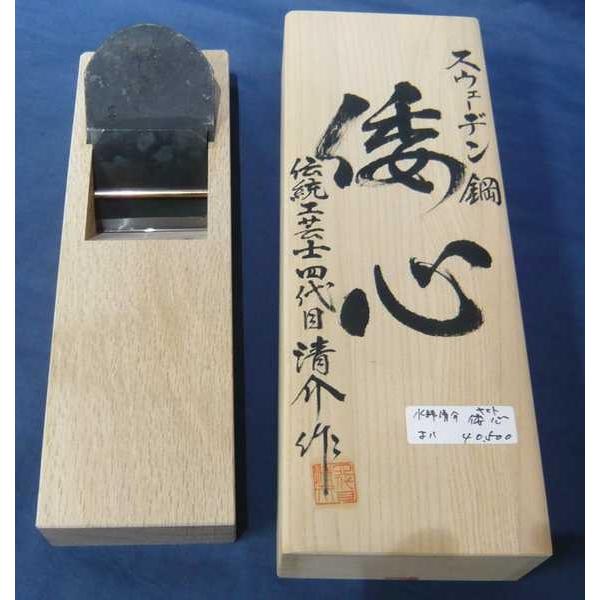 スウェーデン鋼
倭心
伝統工芸士四代目清介作
水野清介 倭心
寸八 40,500